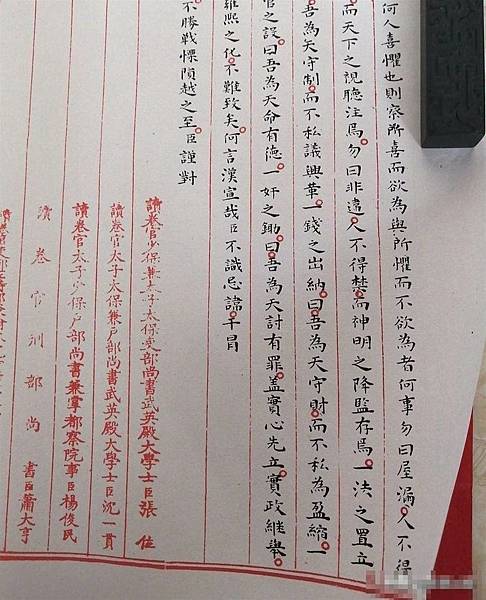 何人喜懼也則察所喜而欲為與所懼而不欲為者何事勿曰屋漏人不得
而天下之視聽注焉勿曰非違人不得禁而神明之降監存焉一法之置立
吾為天守制而不私議興革一錢之出納曰吾為天守財而不私為盈縮一
官之設曰吾為天命有德一奸之鋤曰吾為天討有罪蓋實心先立實政繼舉
雍熙之化不難致矣何言漢宣哉臣不識忌諱干冒
不勝戰慄隕越之至臣謹對
讀卷官少保兼太子太保吏部尚書武英殿大學士臣張位
讀卷官太子太保兼戶部尚書武英殿大學士臣沈一貫
讀卷官太子少保戶部尚書兼掌都察院事臣楊俊民
讀卷官刑部尚書臣蕭大亨